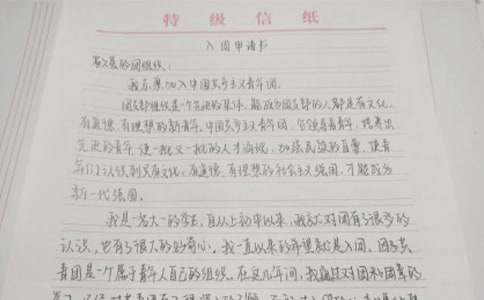 特级信纸
入团申请书
敬爱的团组织：
我志愿加入中国共产主义青年团。
团支部组织是一个先进的集体，能成为团支部的人都是有文化、
有道德、有理想的新青年。中国共产主义青年团，
先进的青年，使一批又一批的人才涌现，加强民族的
年们认识到有文化、有道德、有理想的社会主义强国，才能成为
新一代强国。
我是一名大一的学生，自从上初中以来，我就对团有了很多的
认识，也有了很大的好奇心。我一直以来的希望就是入团。团
青团是一个属于青年人自己的组织。在这几年间，我通过对团和团章的